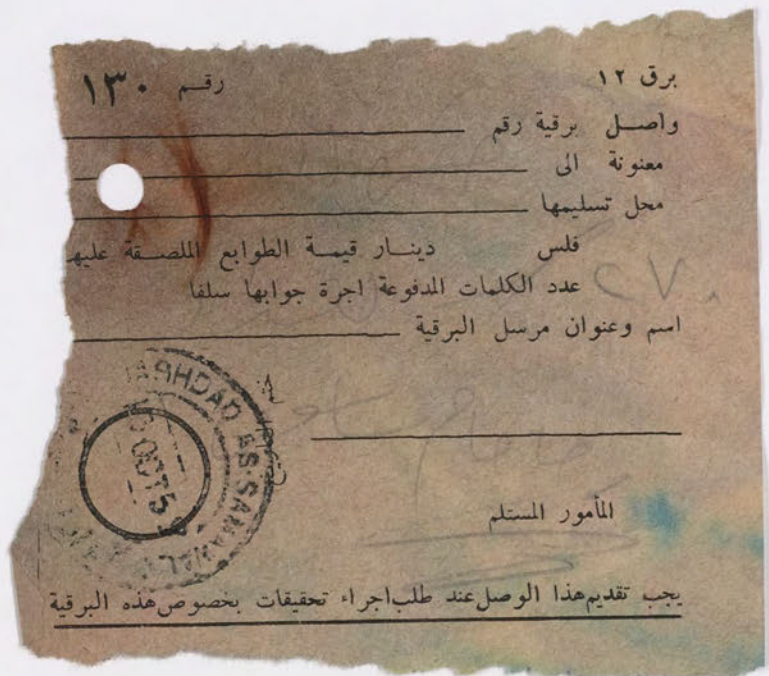 برق ١٢ رقم ١٣٠
واصل برقية رقم
معنونة الى
محل تسليمها
فلس دينار قيمة الطوابع الملصقة عليها
٢٧٠
عدد الكلمات المدفوعة اجرة جوابها سلفا
اسم وعنوان مرسل البرقية
BAGHDAD AS-SAMAWAL
OCT 5
المأمور المستلم
يجب تقديم هذا الوصل عند طلب اجراء تحقيقات بخصوص هذه البرقية